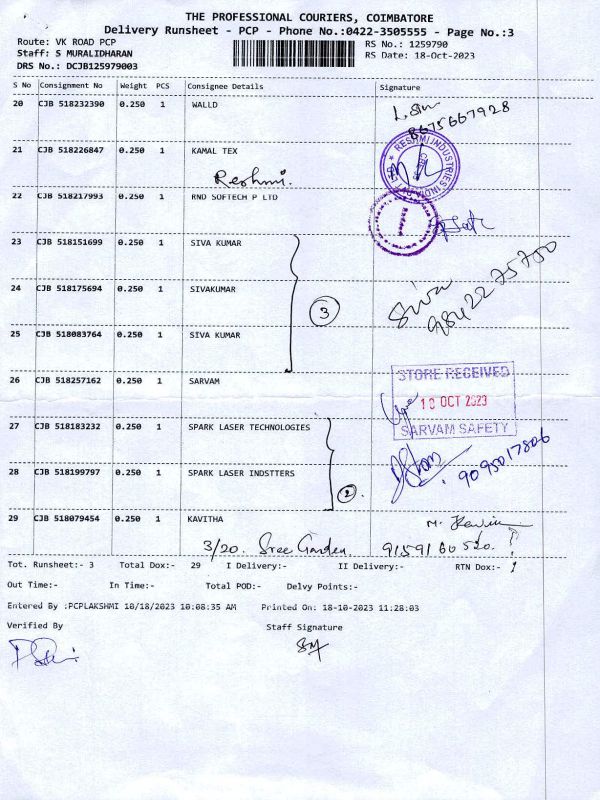 THE PROFESSIONAL COURIERS, COIMBATORE
Delivery Runsheet - PCP - Phone No.:0422-3505555 - Page No.:3
Route: VK ROAD PCP
RS No.: 1259790
Staff: S MURALIDHARAN
RS Date: 18-Oct-2023
DRS No.: DCJB125979003
S No Consignment No Weight PCS Consignee Details Signature
20 CJB 518232390 0.250 1 WALLD
8675667928
21 CJB 518226847 0.250 1 KAMAL TEX
Reshmi.
RESHMI INDUSTRIES INDIA
22 CJB 518217993 0.250 1 RND SOFTECH P LTD
23 CJB 518151699 0.250 1 SIVA KUMAR
24 CJB 518175694 0.250 1 SIVAKUMAR
3
Siva
98422 75700
25 CJB 518083764 0.250 1 SIVA KUMAR
26 CJB 518257162 0.250 1 SARVAM
STORE RECEIVED
18 OCT 2023
SARVAM SAFETY
27 CJB 518183232 0.250 1 SPARK LASER TECHNOLOGIES
28 CJB 518199797 0.250 1 SPARK LASER INDSTTERS
2.
9095017806
29 CJB 518079454 0.250 1 KAVITHA
3/20. Sree Garden. 9159160520.
Tot. Runsheet:- 3 Total Dox:- 29 I Delivery:- II Delivery:- RTN Dox:- 1
Out Time:- In Time:- Total POD:- Delvy Points:-
Entered By :PCPLAKSHMI 10/18/2023 10:08:35 AM Printed On: 18-10-2023 11:28:03
Verified By Staff Signature